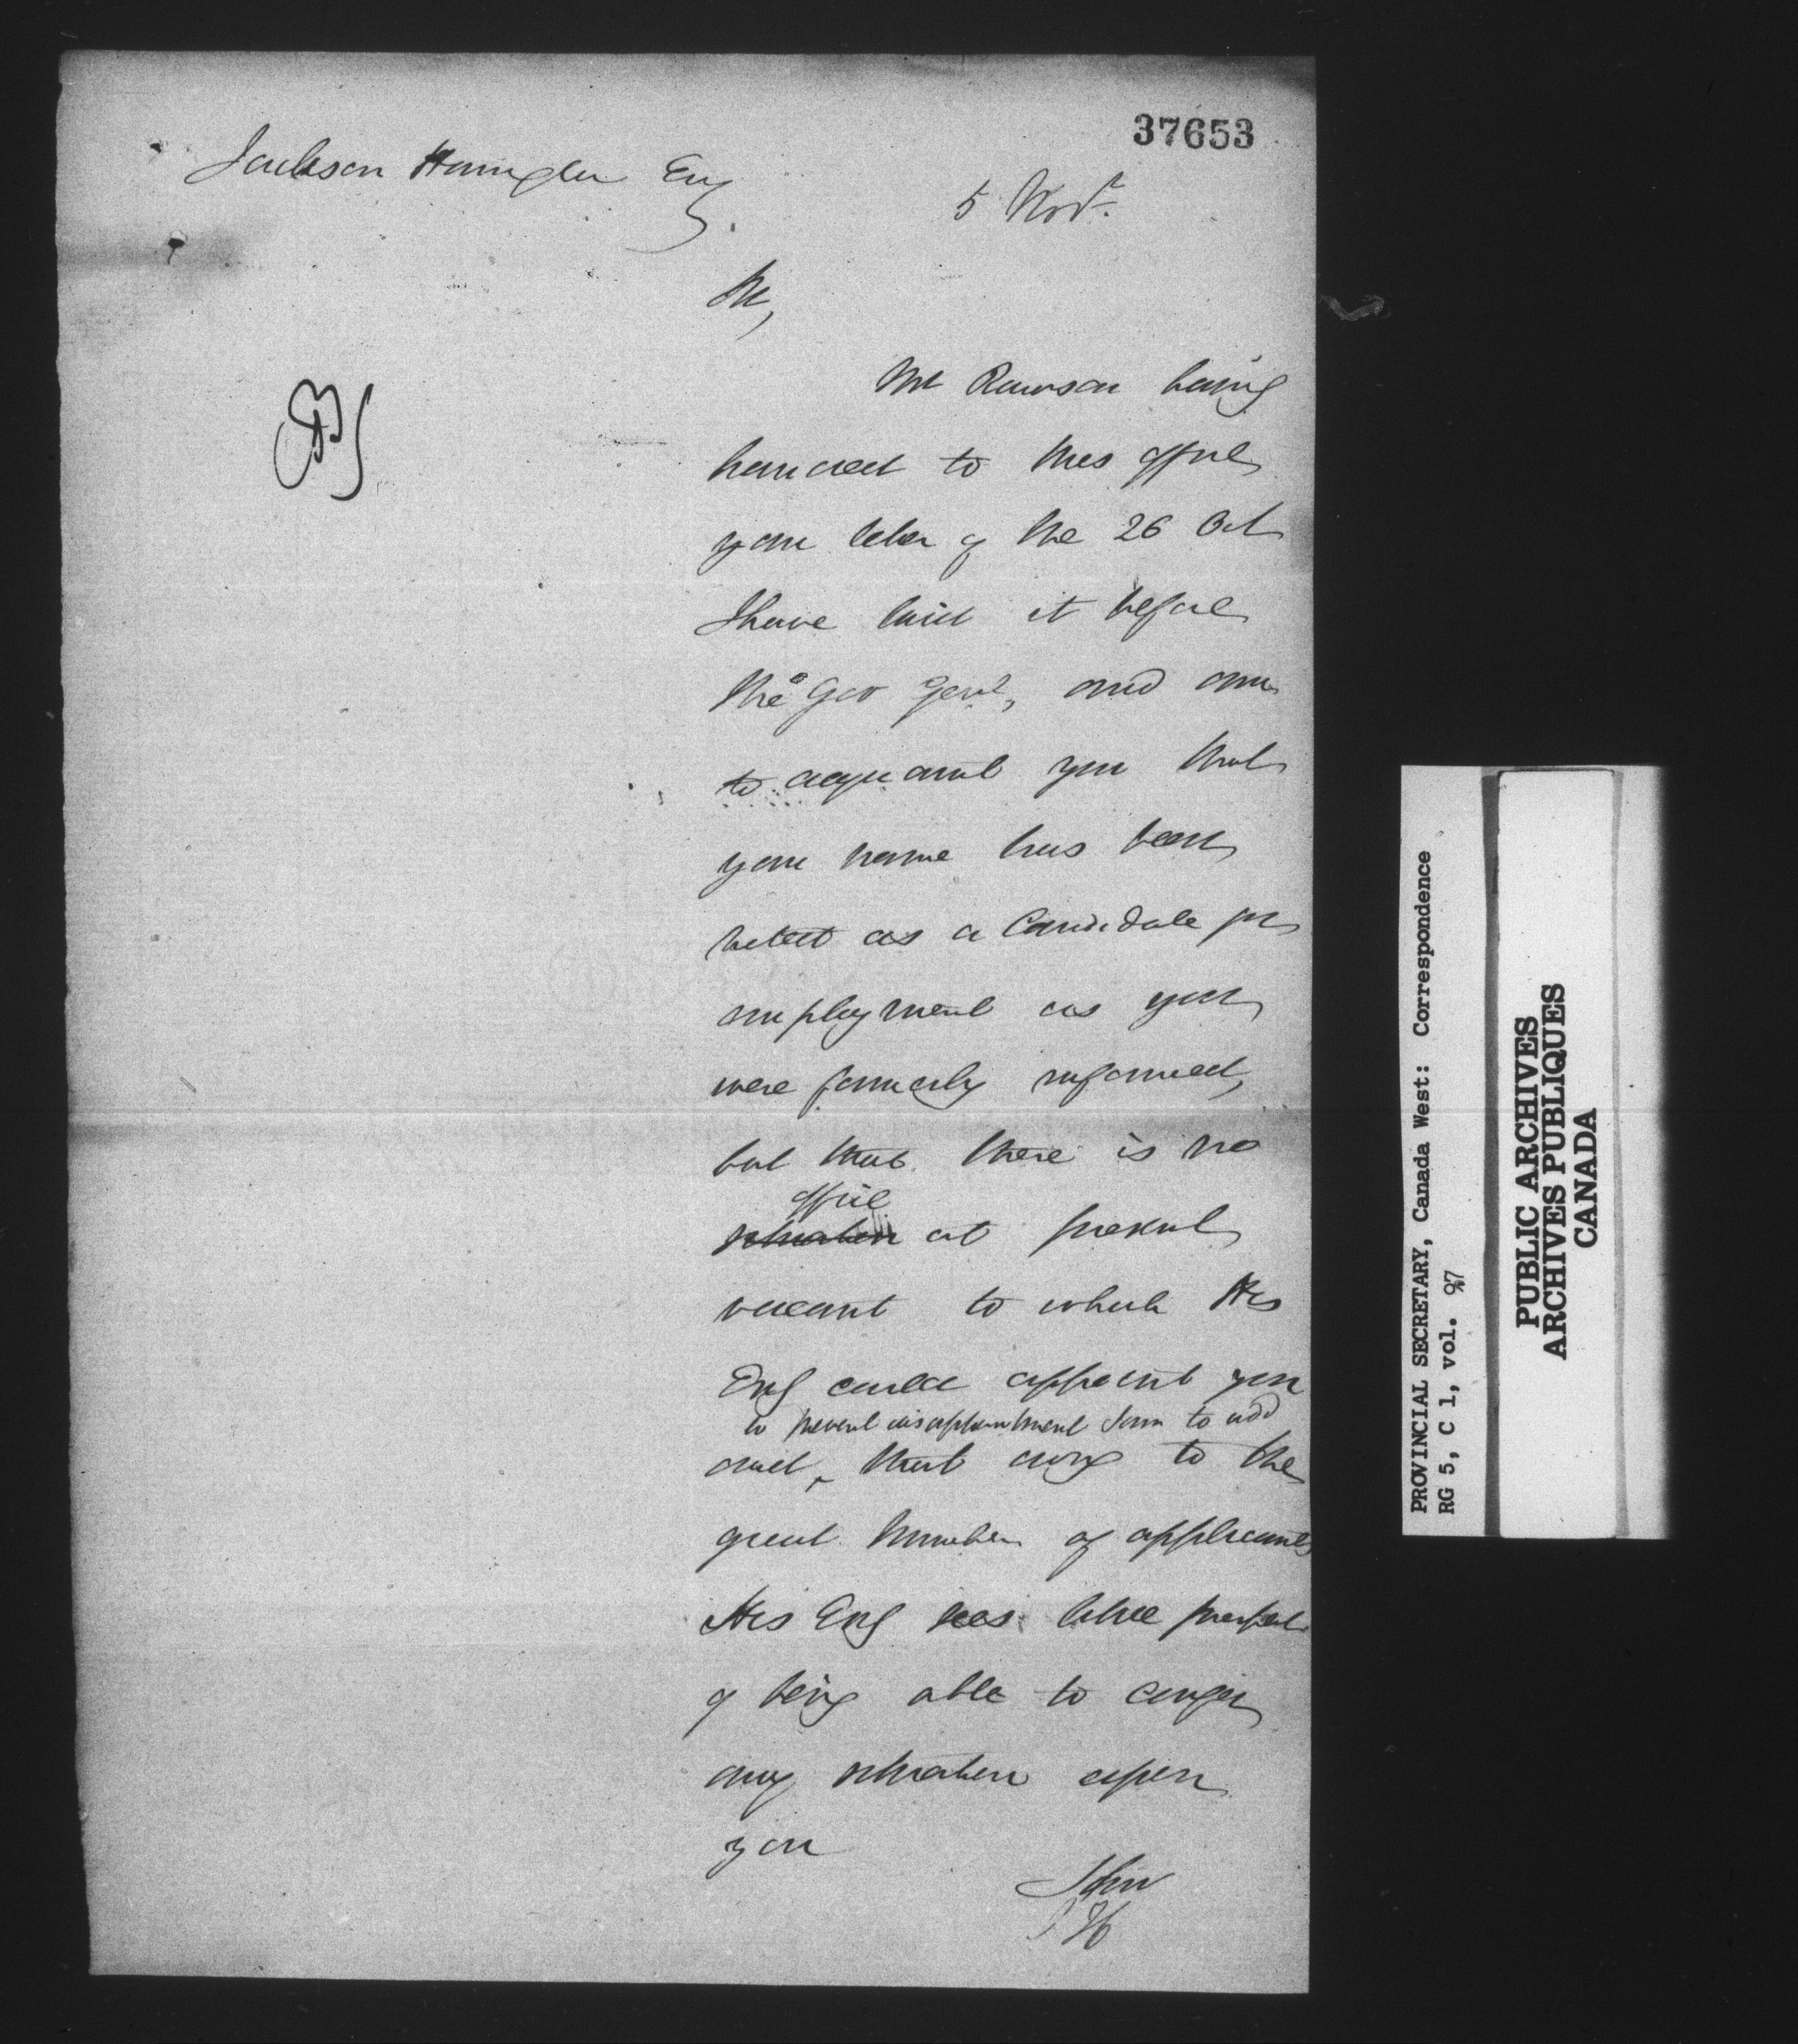 37653
Jackson Esq.
5 Novr.
Sir,
Mr Rawson having
handed to this office
your letter of the 26 Oct
I have laid it before
the Gov Genl, and am
to acquaint you that
your name has been
noted as a Candidate for
employment as you
were formerly informed,
but that there is no
office
situation at present
vacant to which His
Exy could appoint you
to prevent disappointment I am to add
and, that owing to the
great number of applicants
His Exy sees little prospect
of being able to confer
any situation upon
you
PROVINCIAL SECRETARY, Canada West: Correspondence
RG 5, C 1, vol. 97
PUBLIC ARCHIVES
ARCHIVES PUBLIQUES
CANADA